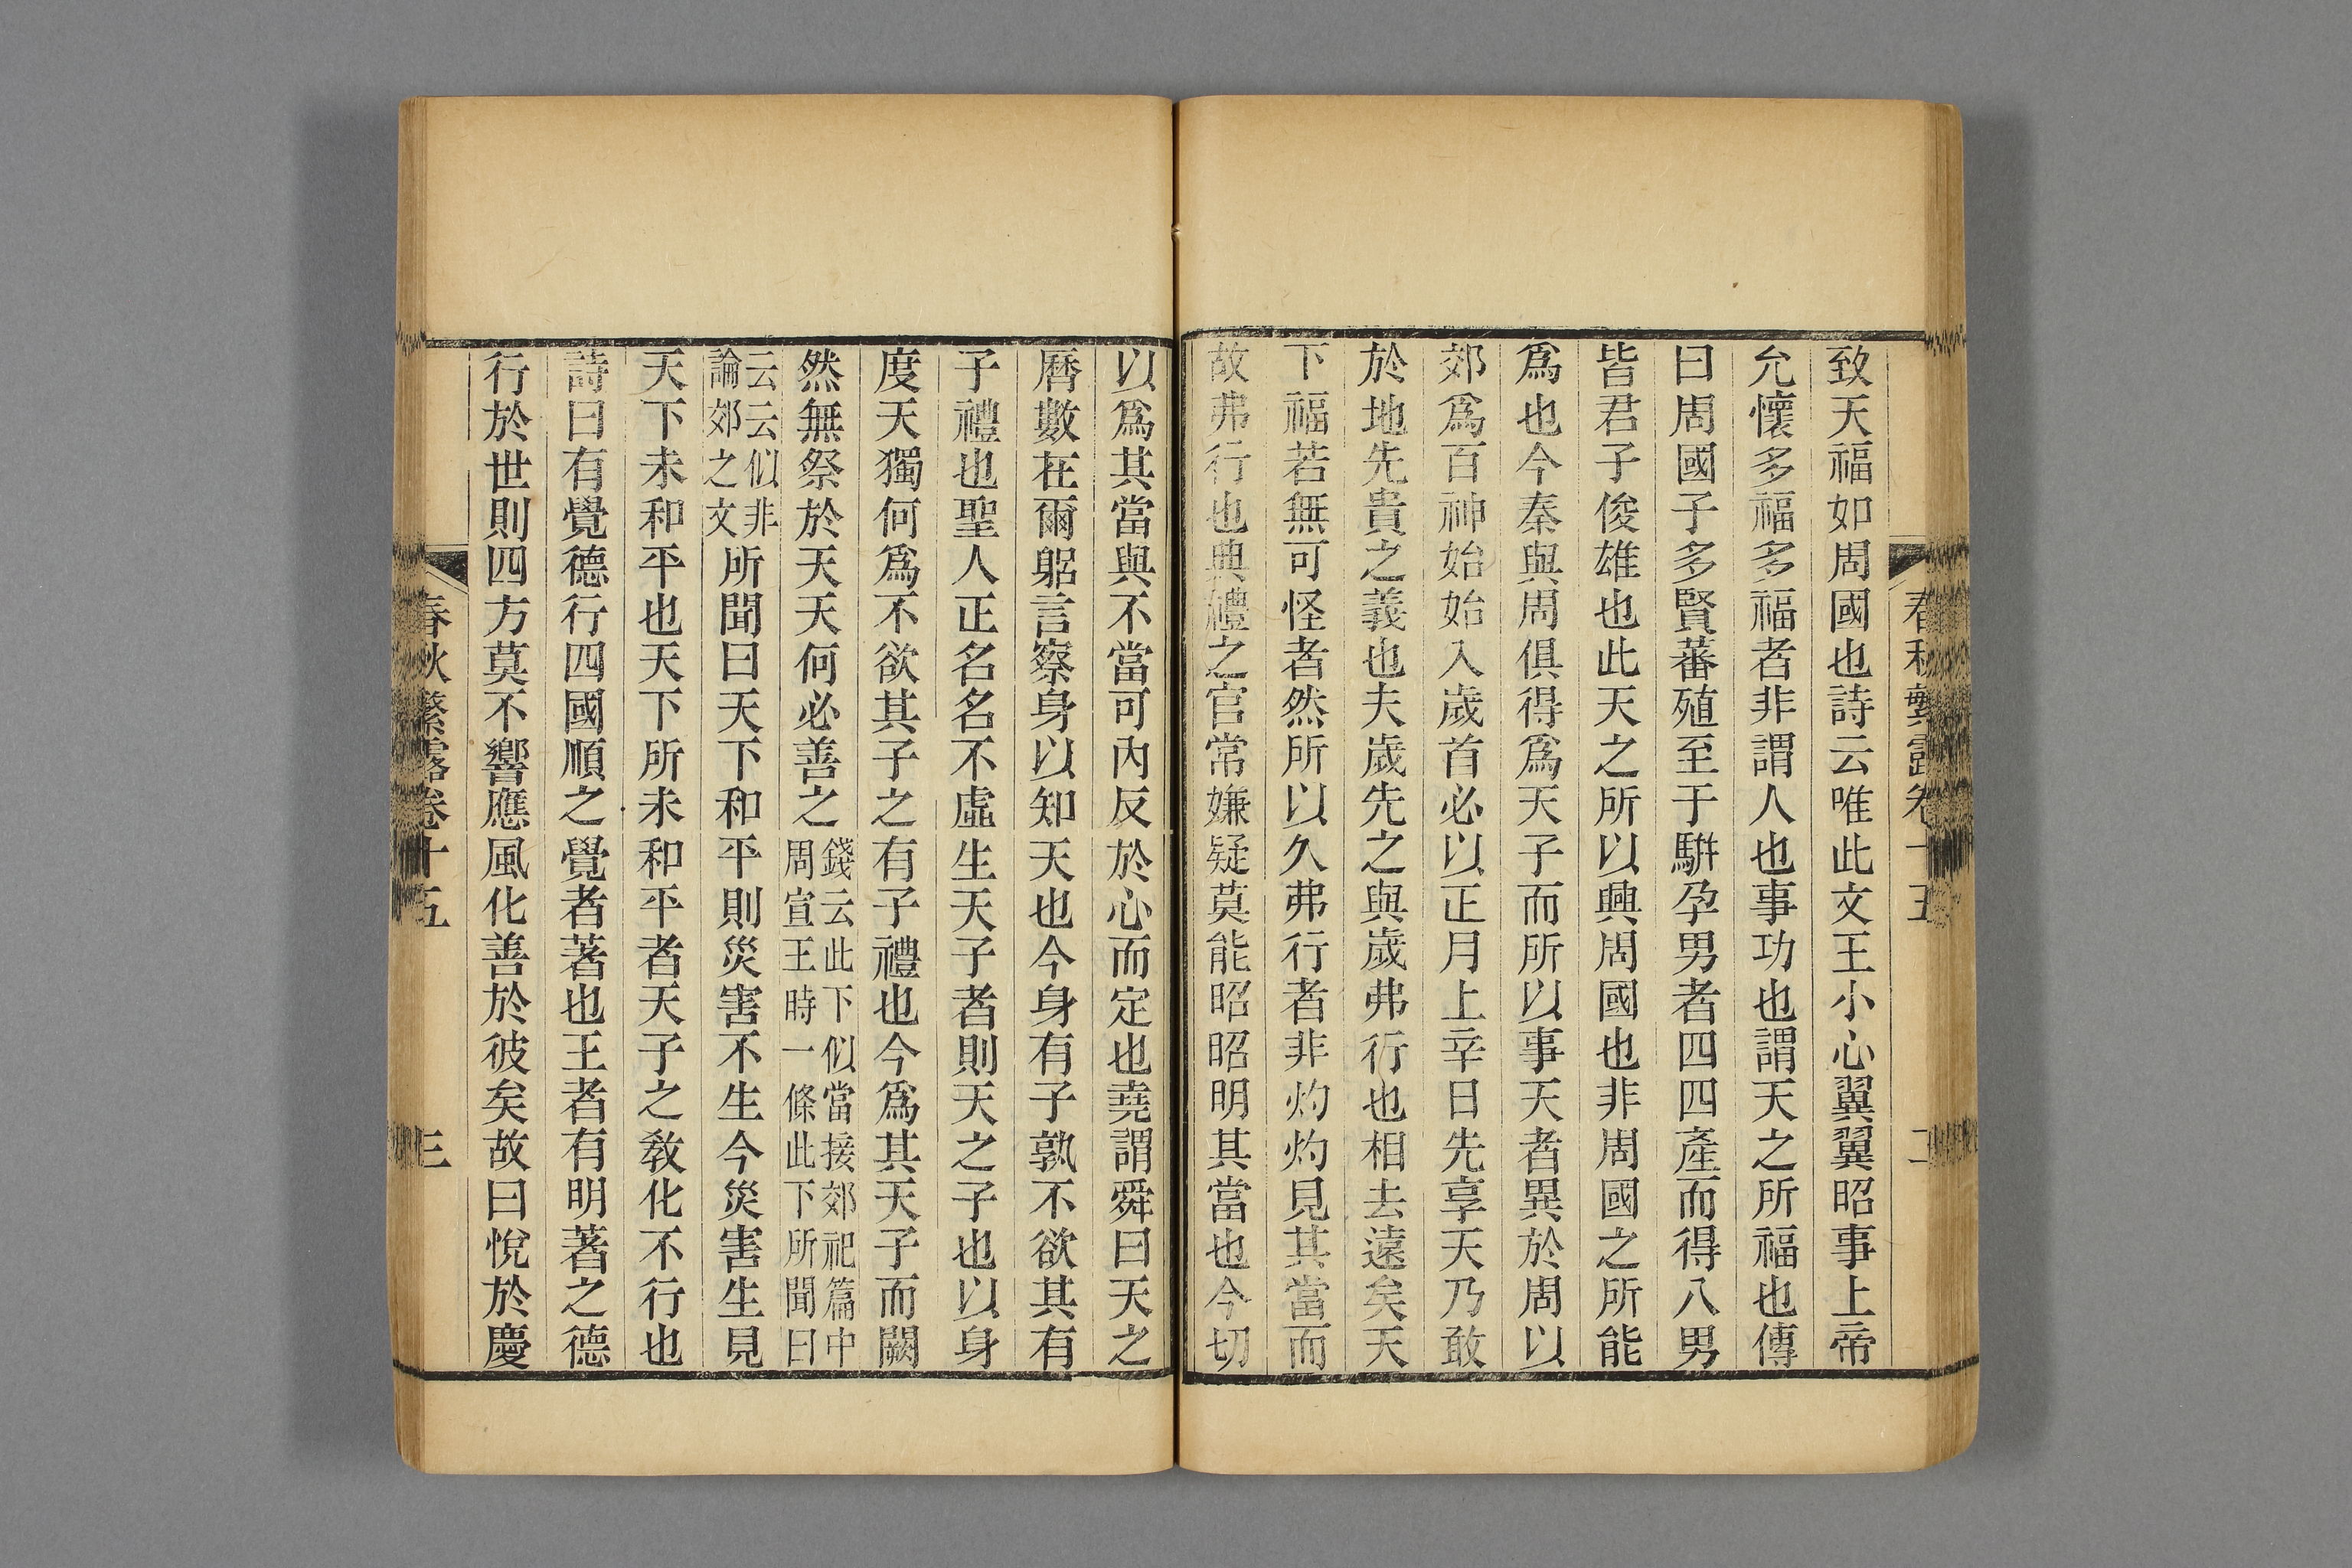 春秋繁露卷十五
二
致天福如周國也詩云唯此文王小心翼翼昭事上帝
允懷多福多福者非謂人也事功也謂天之所福也傳
曰周國子多賢蕃殖至于駢孕男者四四產而得八男
皆君子俊雄也此天之所以興周國也非周國之所能
爲也今秦與周俱得爲天子而所以事天者異於周以
郊爲百神始始入歲首必以正月上辛日先享天乃敢
於地先貴之義也夫歲先之與歲弗行也相去遠矣天
下福若無可怪者然所以久弗行者非灼灼見其當而
故弗行也典禮之官常嫌疑莫能昭昭明其當也今切
以爲其當與不當可內反於心而定也堯謂舜曰天之
曆數在爾躬言察身以知天也今身有子孰不欲其有
子禮也聖人正名名不虛生天子者則天之子也以身
度天獨何爲不欲其子之有子禮也今爲其天子而闕
然無祭於天天何必善之錢云此下似當接郊祀篇中
周宣王時一條此下所聞曰
云云似非
論郊之文所聞曰天下和平則災害不生今災害生見
天下未和平也天下所未和平者天子之敎化不行也
詩曰有覺德行四國順之覺者著也王者有明著之德
行於世則四方莫不響應風化善於彼矣故曰悅於慶
春秋繁露卷十五
三